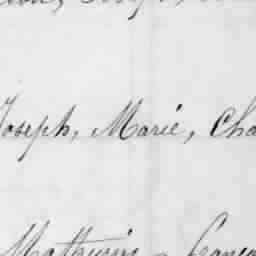 Joseph, Marie, Cha
Mathurin - Franço